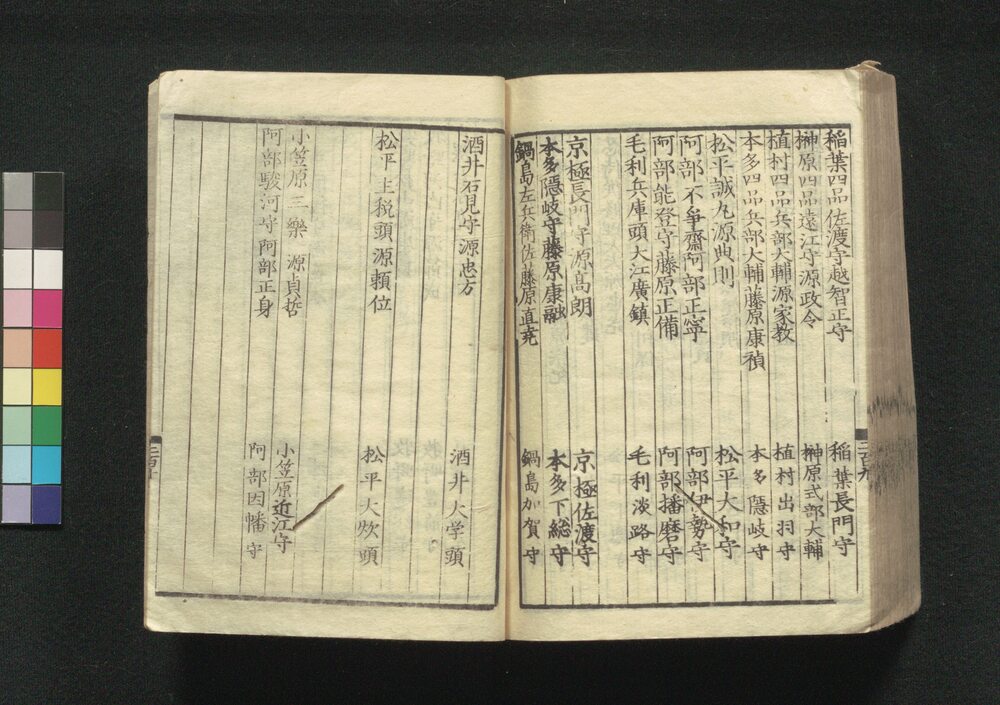 稲葉四品佐渡守越智正守 稲葉長門守
榊原四品遠江守源政令 榊原式部大輔
植村四品兵部大輔源家教 植村出羽守
本多四品兵部大輔藤原康禎 本多隠岐守
松平誠丸源典則 松平大和守
阿部不爭齋阿部正寧 阿部伊勢守
阿部能登守藤原正備 阿部播磨守
毛利兵庫頭大江廣鎮 毛利淡路守
京極長門守源高朗 京極佐渡守
本多隠岐守藤原康融 本多下総守
鍋島左兵衛佐藤原直尭 鍋島加賀守
二百九
酒井石見守源忠方 酒井大学頭
松平主税頭源頼位 松平大炊頭
小笠原三樂 源貞哲 小笠原近江守
阿部駿河守阿部正身 阿部因幡守
二百十